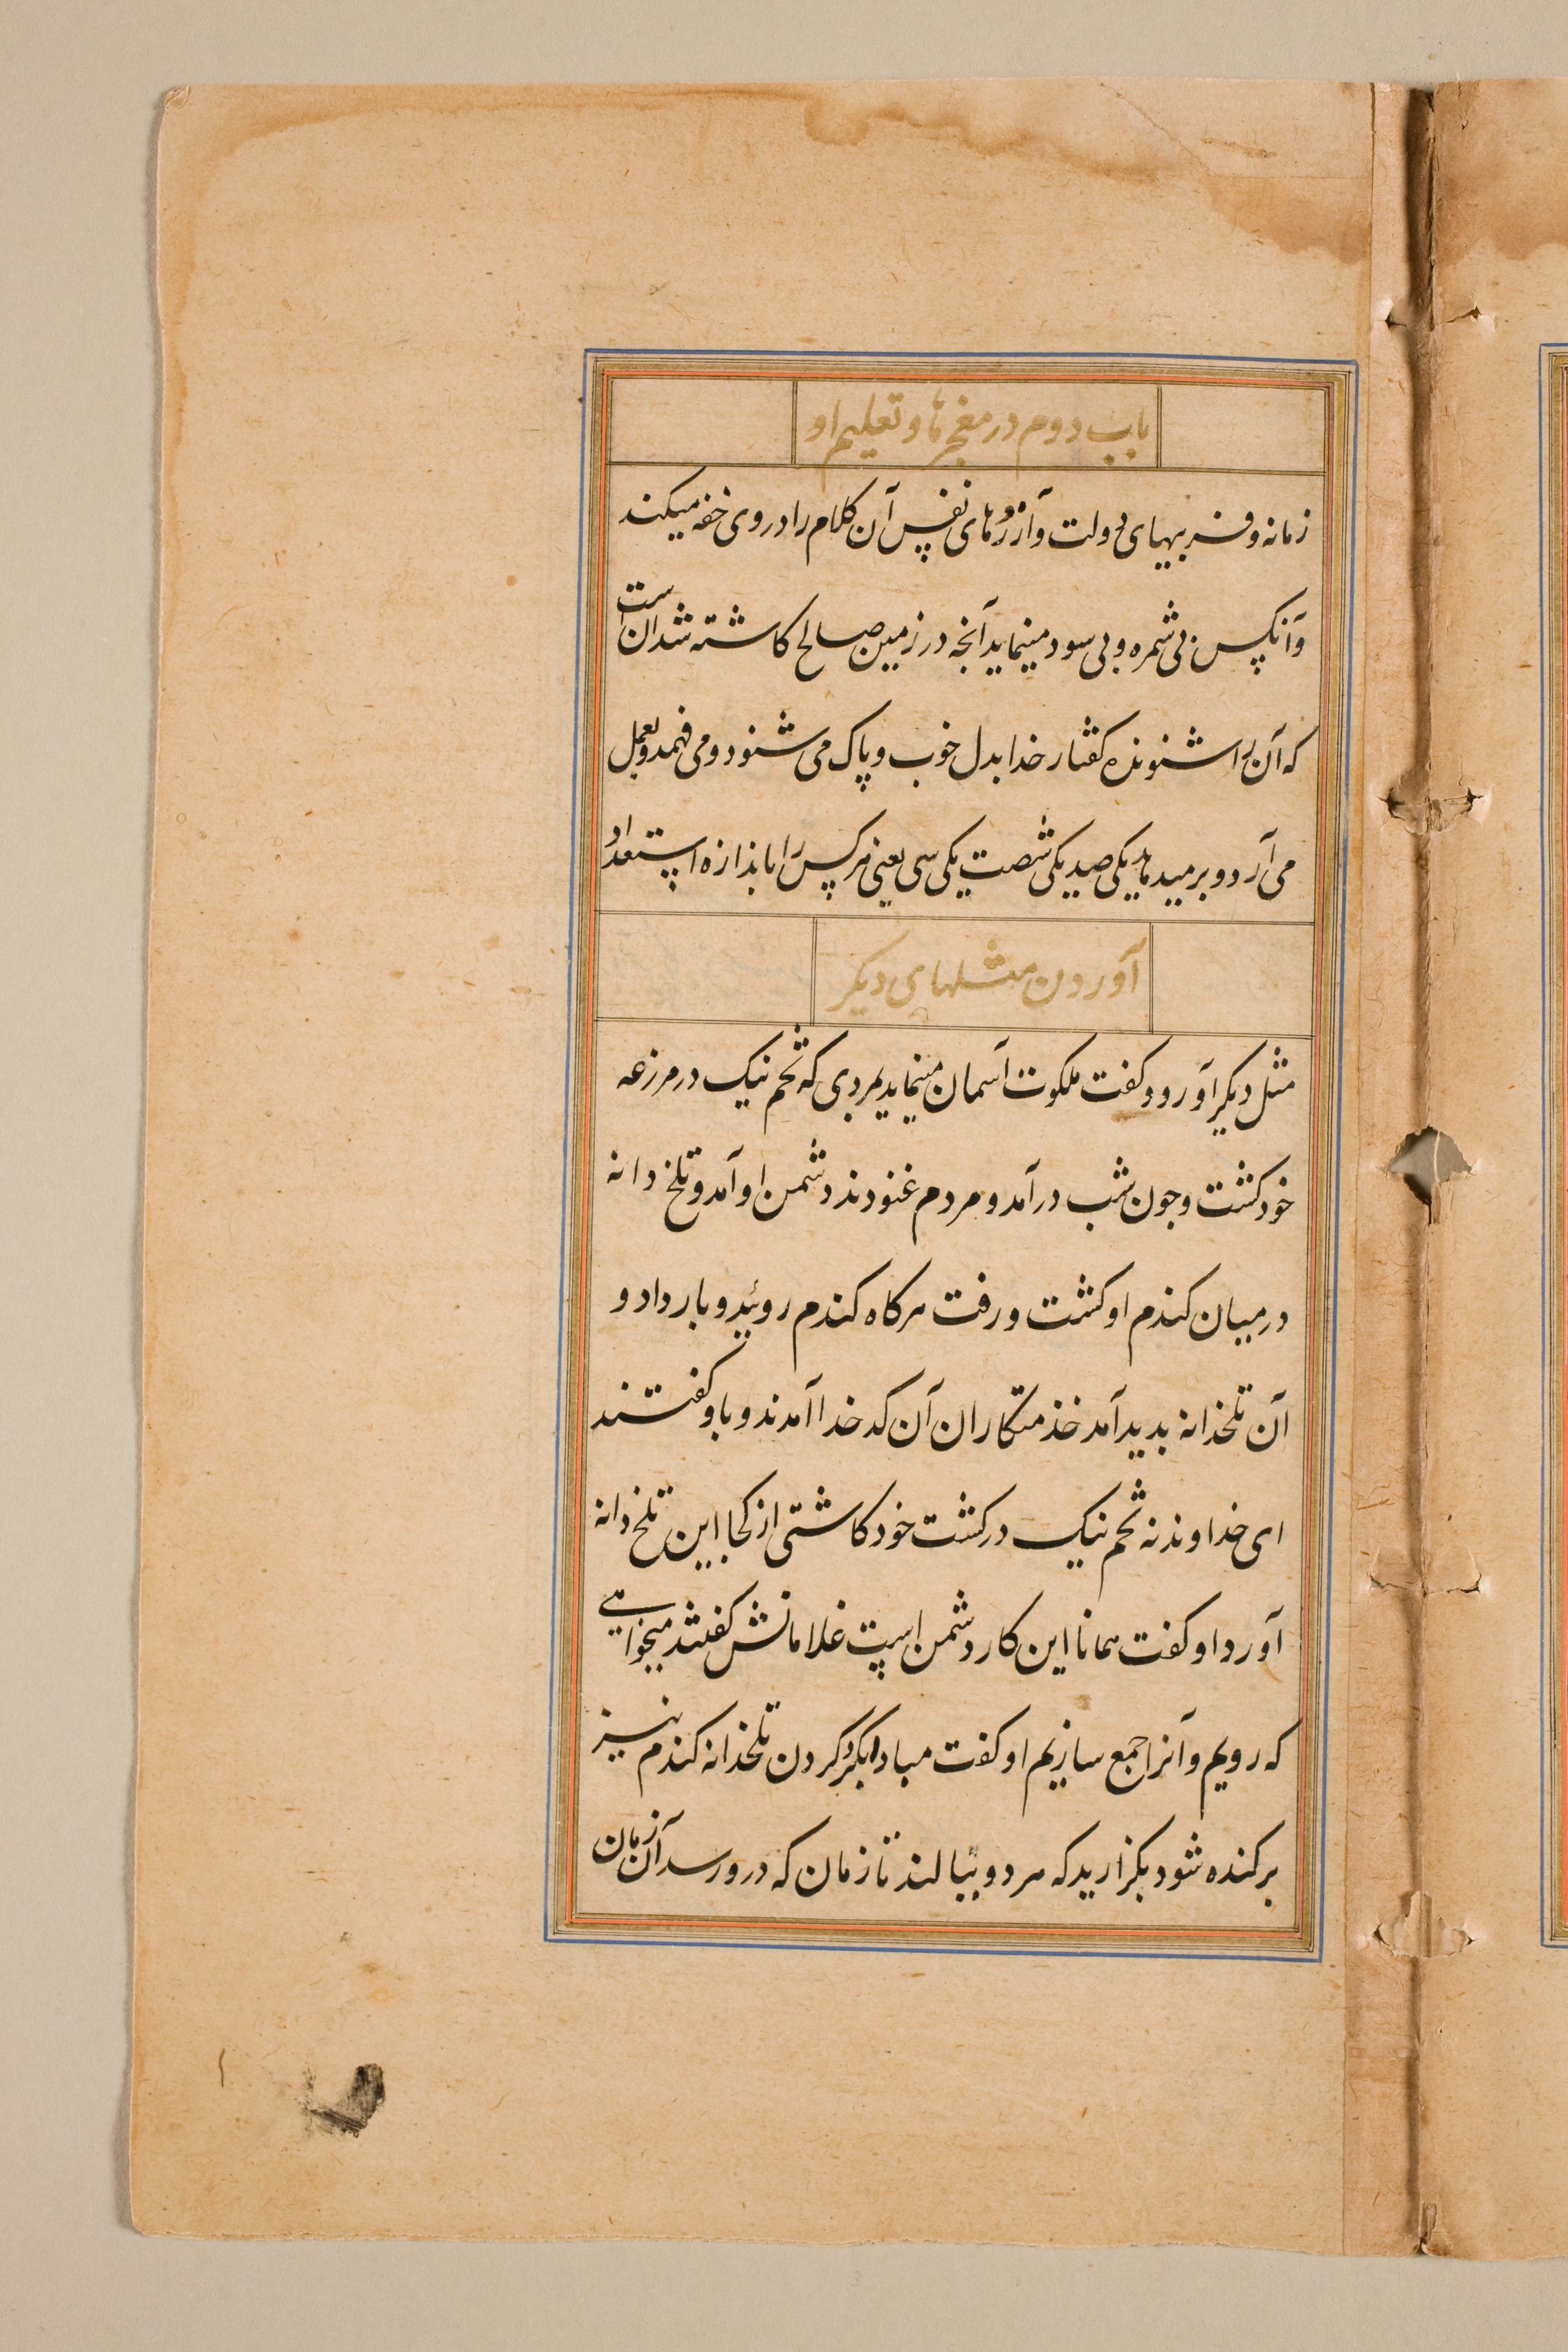 باب دوم در معجزها و تعلیم او
زمانه و فریبهای دولت و آرزوهای نفس آن کلام را در وی خفه میکند
و آنکس بی ثمره و بی سود مینماید آنچه در زمین صالح کاشته شد آن است
که آن را شنونده کفتار خدا بدل خوب و پاک می شنود و می فهمد و بعمل
می آرد و بر میدهد یکی صد یکی شصت یکی سی یعنی هر کس را باندازه استعداد
آوردن مثلهای دیکر
مثل دیکر آورد و کفت ملکوت آسمان مینماید بمردی که تخم نیک در مزرعه
خود کشت و چون شب در آمد و مردم غنودند دشمن او آمد و تلخ دانه
در میان کندم او کشت و رفت هرکاه کندم روئید و بار داد و
آن تلخدانه بدید آمد خذمتکاران آن کدخدا آمدند و باو کفتند
ای خداوند نه تخم نیک در کشت خود کاشتی از کجا این تلخ دانه
آورد او کفت همانا این کار دشمن است غلامانش کفتند میخواهی
که رویم و آنرا جمع سازیم او کفت مبادا بکرد کردن تلخدانه کندم نیز
بر کنده شود بکزارید که هر دو ببالند تا زمان که درو رسد آن زمان
۱